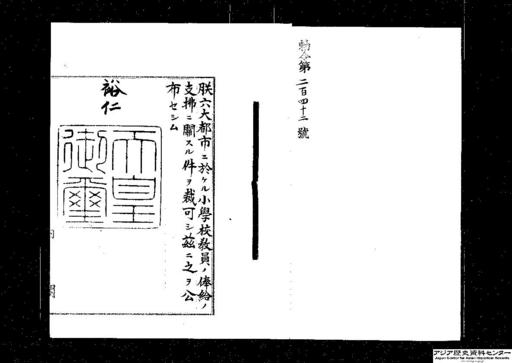 勅令第二百四十二號
朕六大都市ニ於ケル小學校敎員ノ俸給ノ
支拂ニ關スル件ヲ裁可シ茲ニ之ヲ公
布セシム
裕仁
天皇
御璽
内閣
アジア歴史資料センター
Japan Center for Asian Historical Records